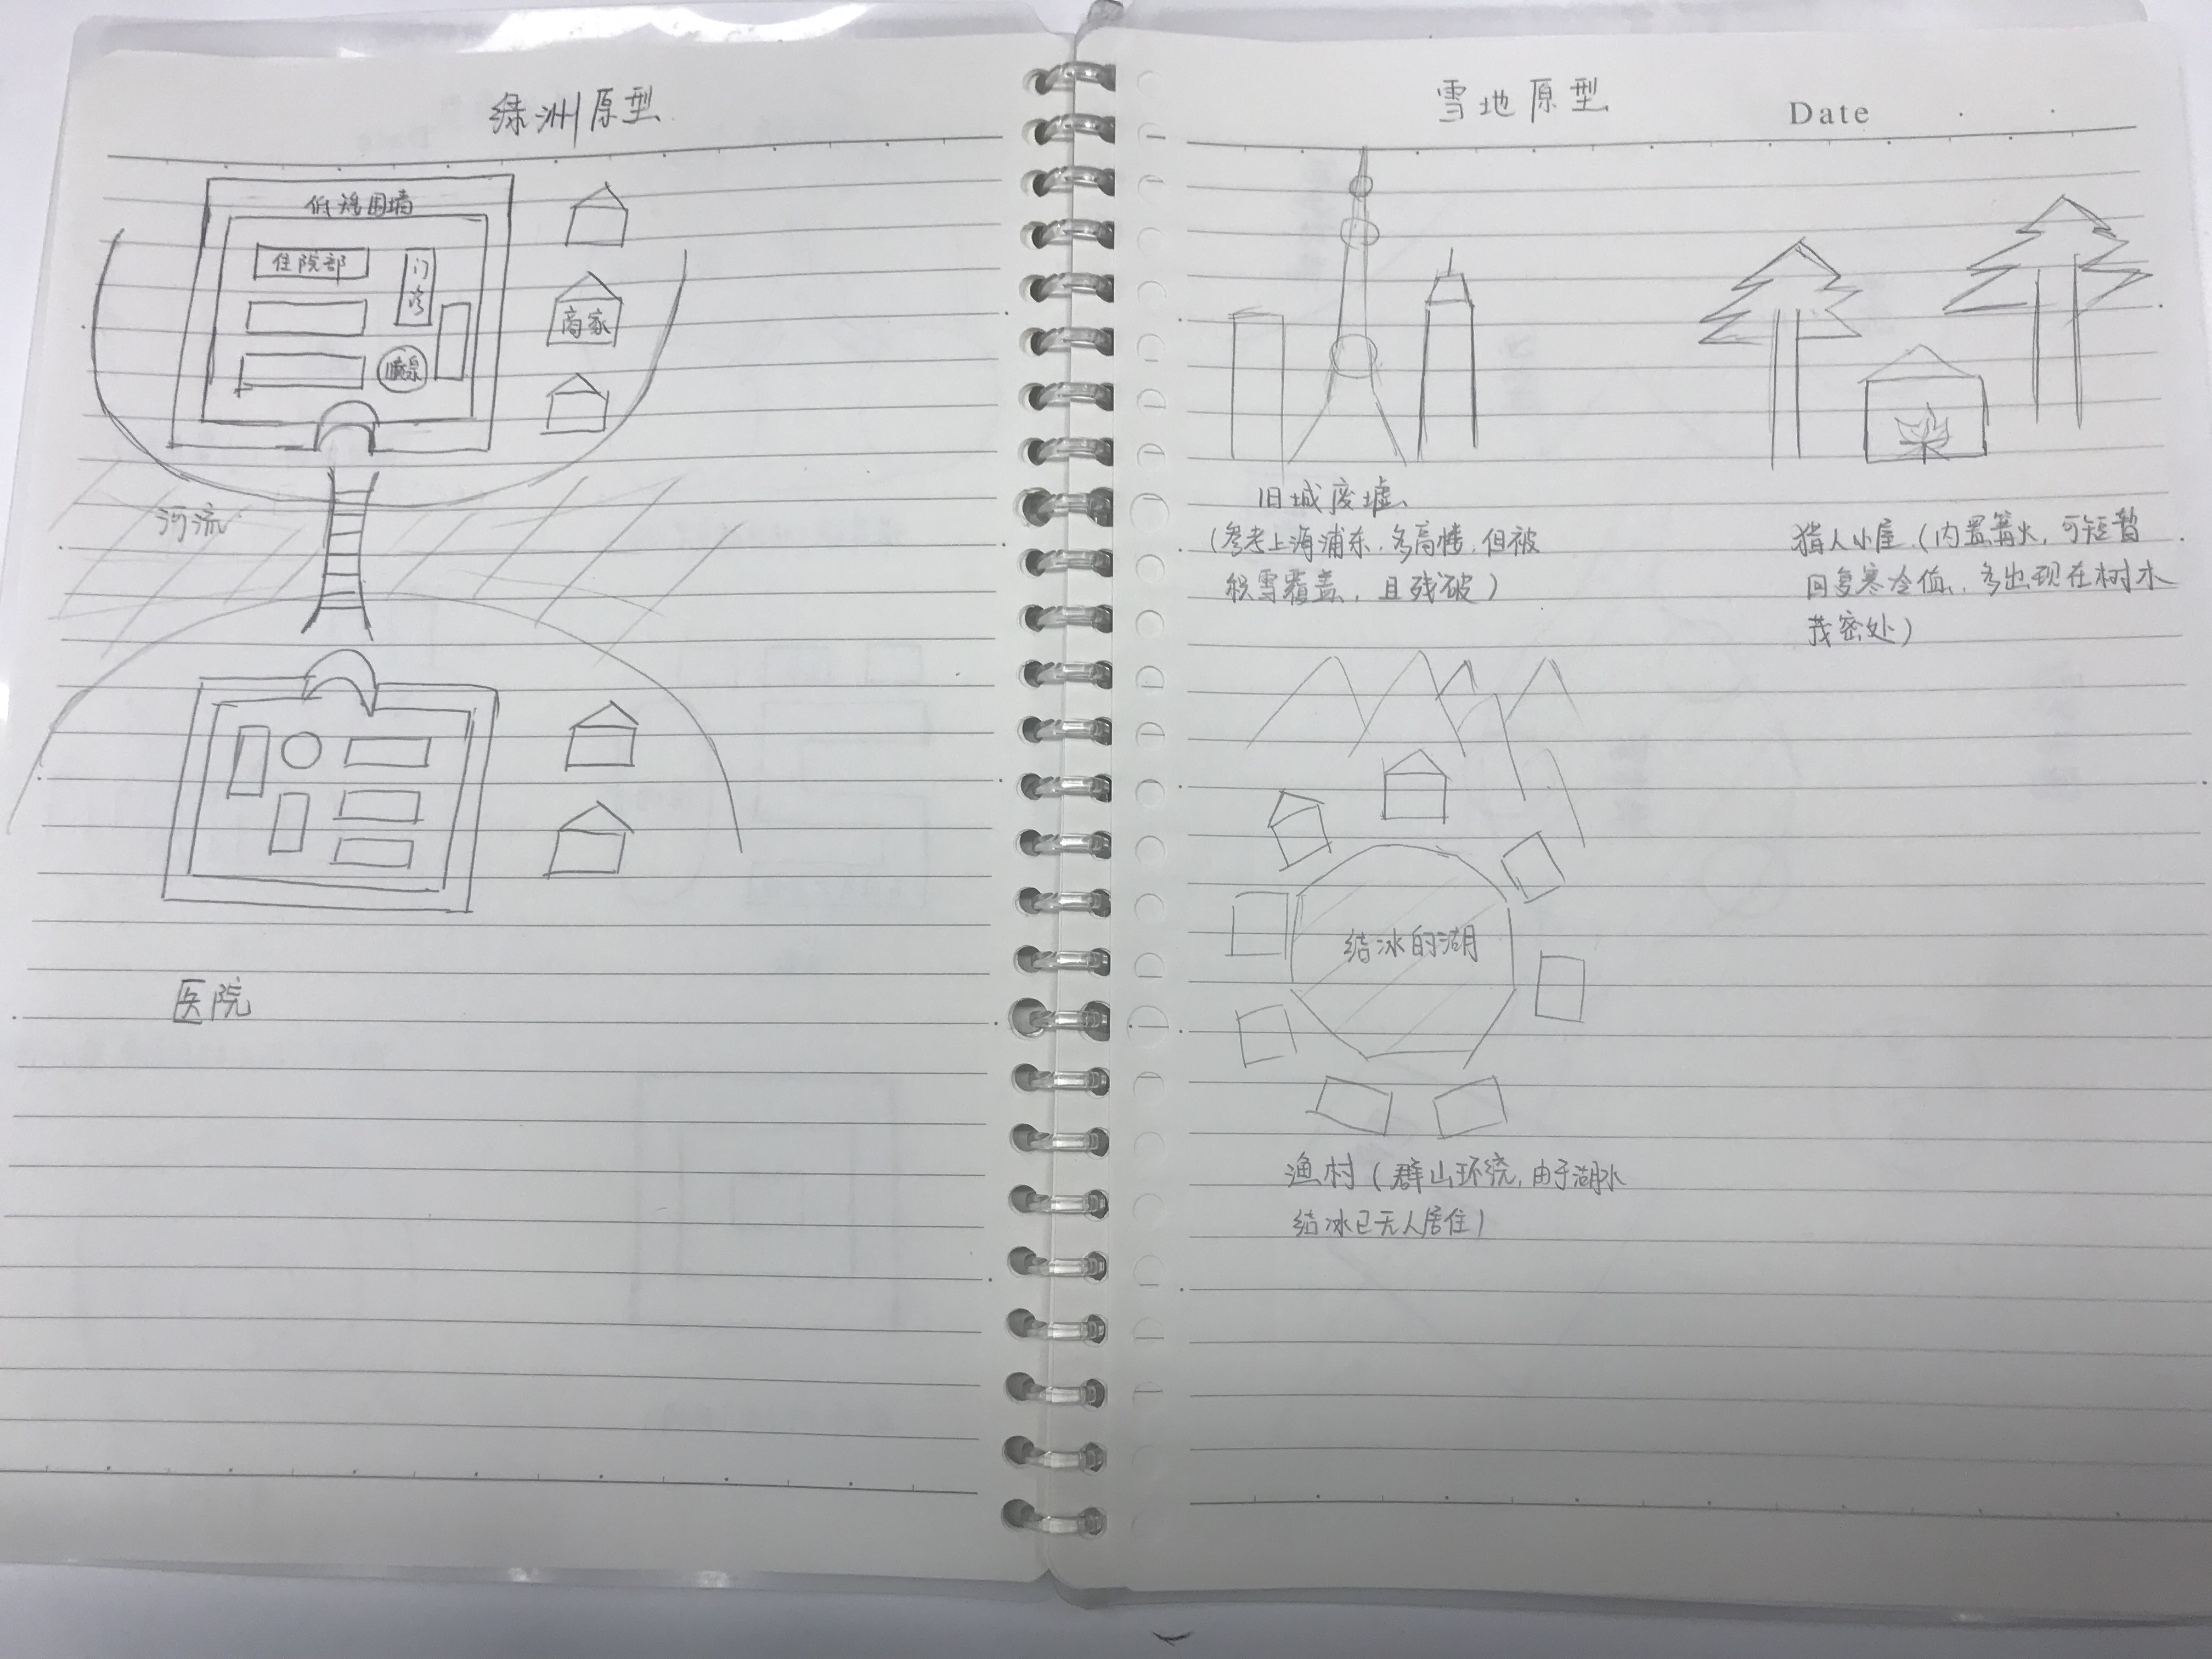 绿洲原型
低矮围墙
住院部
门诊
喷泉
商家
河流
医院
雪地原型
Date
旧城废墟
(参考上海浦东,多高楼,但被
积雪覆盖,且残破)
猎人小屋(内置篝火,可短暂
回复寒冷值,多出现在树木
茂密处)
结冰的湖
渔村(群山环绕,由于湖水
结冰已无人居住)